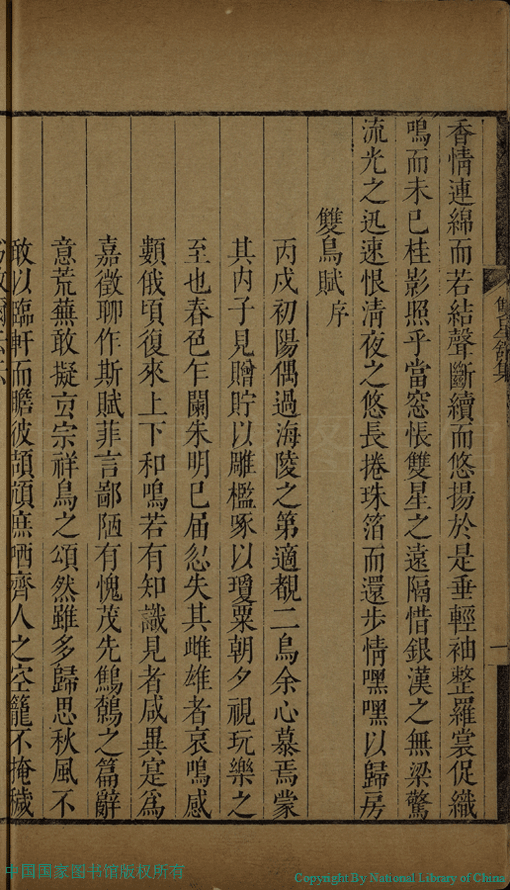 香情連綿而若結聲斷續而悠揚於是垂輕袖整羅裳促織
鳴而未已桂影照乎當窓悵雙星之遠隔惜銀漢之無梁驚
流光之迅速恨淸夜之悠長捲珠箔而還步情嘿嘿以歸房
雙鳥賦序
丙戌初陽偶過海陵之第適覩二鳥余心慕焉蒙
其內子見贈貯以雕檻啄以瓊粟朝夕視玩樂之
至也春色乍闌朱明已届忽失其雌雄者哀鳴感
顙俄頃復來上下和鳴若有知識見者咸異寔爲
嘉徵聊作斯賦菲言鄙陋有愧茂先鷦鷯之篇辭
意荒蕪敢擬玄宗祥鳥之頌然雖多歸思秋風不
敢以臨軒而瞻彼頡頏庶哂齊人之空籠不掩穢
一
中国国家图书馆版权所有
Copyright By National Library of China